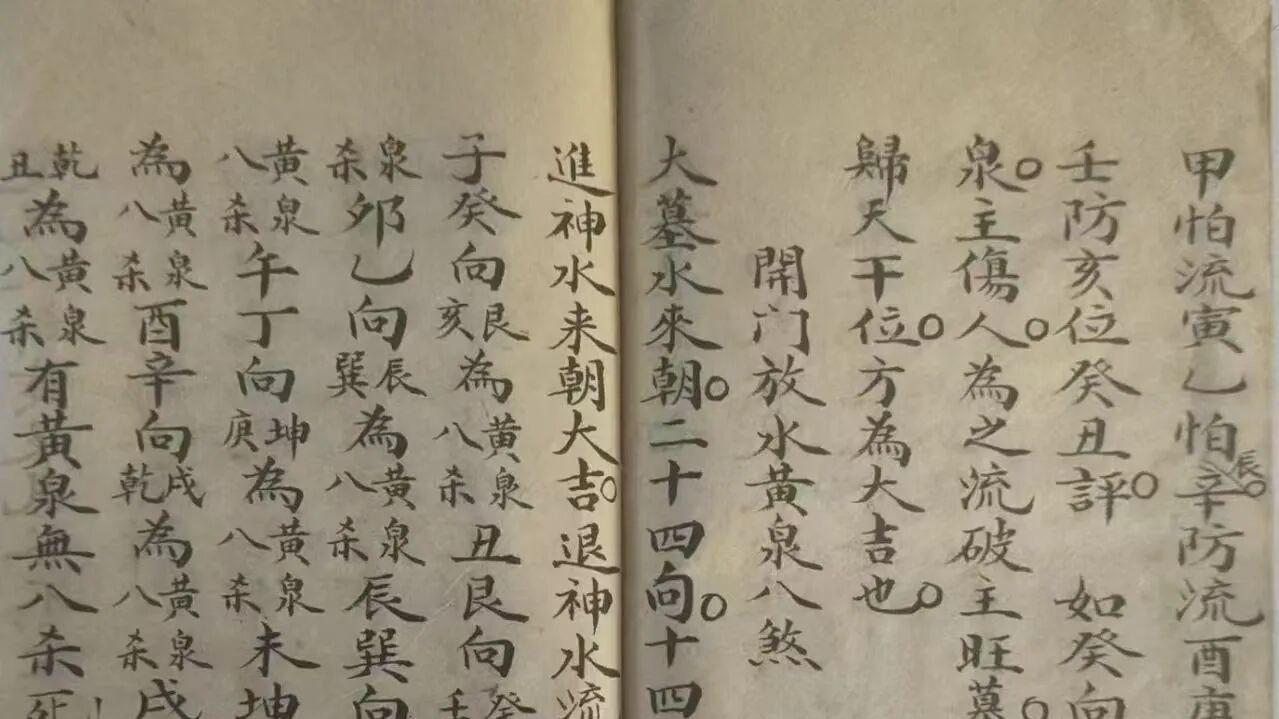 甲怕流寅乙怕辛辰○防流酉庚
壬防亥位癸丑評○ 如癸向
泉○主傷人○為之流破主旺墓○
歸天干位○方為大吉也○
開門放水黃泉八煞
大墓水來朝○二十四向○十四
進神水来朝大吉○退神水流
子癸向艮亥為黃泉八杀丑艮向癸壬
泉杀夘乙向辰巽為黃泉八杀辰巽向
黃泉八杀午丁向坤庚為黃泉八杀未坤
為黃泉八杀酉辛向戌乾為黃泉八杀戌
乾丑為黃泉八杀有黃泉無八杀